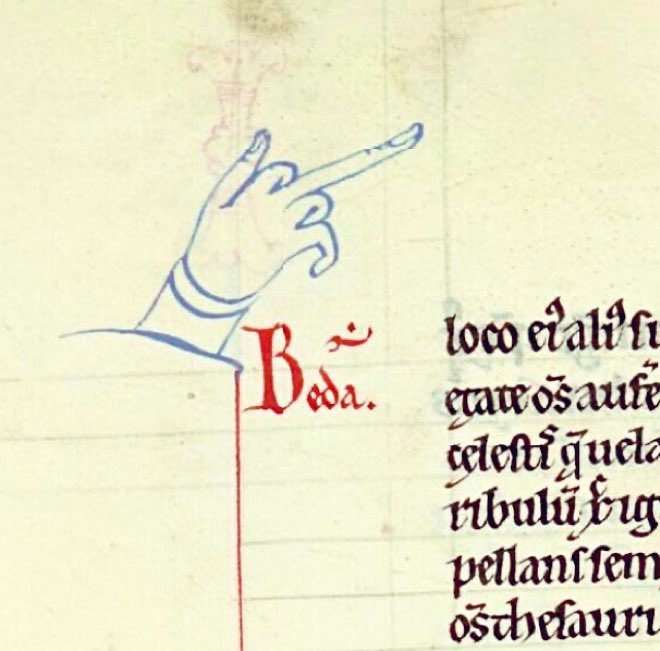 Beda.
loco ei᾿ ali᾿ su
etate os̄ aufe
celestiˢ q̄ uela
ribulū
pellans sem
os̄ thesauri